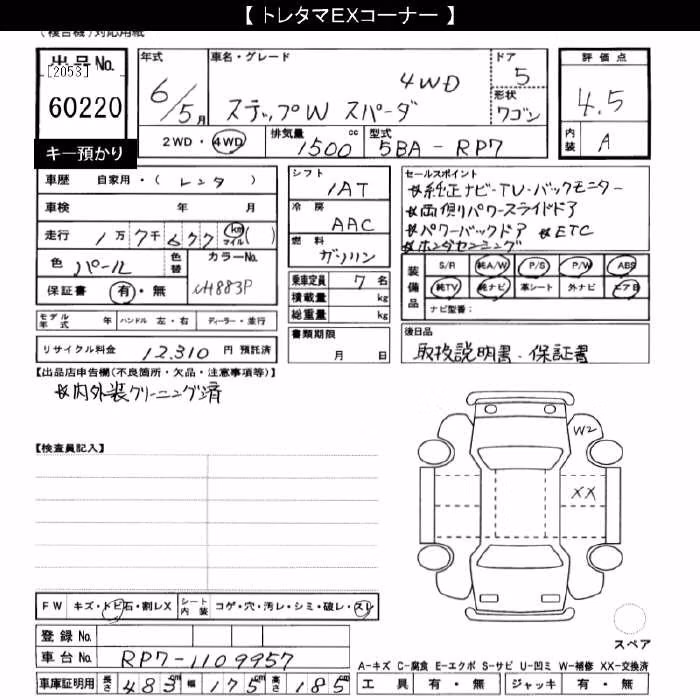 【 トレタマEXコーナー 】
(複合機)対応用紙
出品No.
[2053]
60220
キー預かり
年式
6/5月
車名・グレード
4WD
ステップW スパーダ
ドア
5
形状
ワゴン
評価点
4.5
内装
A
2WD・4WD
排気量
1500 cc
型式
5BA-RP7
車歴 自家用・( レンタ )
車検 年 月
走行 1万7千677 km マイル( )
色 パール
色替
カラーNo.
NH883P
保証書 有・無
シフト
1AT
冷房
AAC
燃料
ガソリン
乗車定員 7名
積載量 kg
総重量 kg
セールスポイント
※純正ナビ-TV-バックモニター
※両側パワースライドドア
※パワーバックドア ※ETC
※ホンダセンシング
装備品
S/R 純A/W P/S P/W ABS
純TV 純ナビ 革シート 外ナビ エアB
ナビ型番:
モデル年式 年 ハンドル 左・右 ディーラー・並行
書類期限
月 日
後日品
取扱説明書・保証書
リサイクル料金 12,310 円 預託済
【出品店申告欄(不良箇所・欠品・注意事項等)】
※内外装クリーニング済
【検査員記入】
W2
XX
FW キズ・トビ石・割レX
シート内装 コゲ・穴・汚レ・シミ・破レ・スレ
スペア
登録No.
車台No. RP7-1109957
A-キズ C-腐食 E-エクボ S-サビ U-凹ミ W-補修 XX-交換済
車庫証明用 長さ 483cm 幅 175cm 高さ 185cm
工具 有・無 ジャッキ 有・無